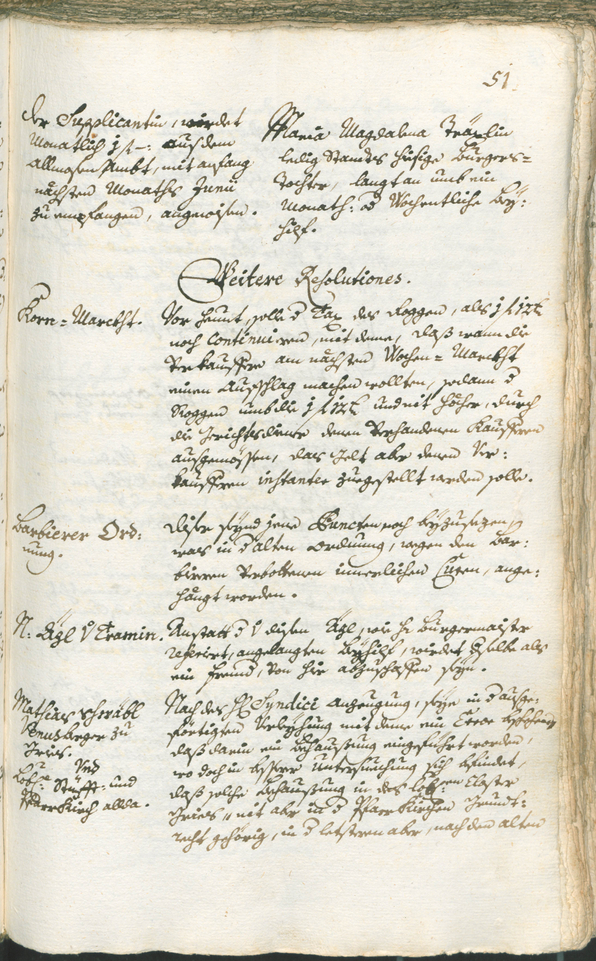 51.
der Supplicantin, wirdet
Monatlich j f –: aus dem
Allmosen Ambt, mit anfang
nächsten Monaths Junii
zu empfangen, angewisen.
Maria Magdalena
ledig Standts hiesige Burgers-
Tochter, langt an umb ein
Monath: od Wochentliche Bey-
hilf.
Weitere Resolutiones.
Korn-Marckht.
Vor heunt, solle d Tax des Roggen, als j f 12 x
noch continuiren, mit deme, daß wann die
Verkauffere am nächsten Wochen-Marckht
einen Aufschlag machen wollten, sodann d
Roggen umb die j f 12 x und nit höher, durch
die Gerichtsdiener denen verhandenen Kauffern
ausgemössen, das Gelt aber denen Ver-
kauffern instanter zuegestellt werden solle.
Barbierer Ord-
nung.
Diser seynd jene Puncten noch beyzusezen,
was in d alten Ordnung, wegen den Bar-
bierern verbottenen innerlichen Curen, ange-
hängt worden.
N: Äzl v Tramin.
Anstatt d v disen Äzl, wie H Burgermaister
referirt, angelangten Beyhilf, wirdet dselbe als
ein Frembd, von hir abzuschaffen seyn.
Mathias Schräbl
Benuzberger zu
Gries.
Und
Lob: Stüfft- und
Pfarrkirch allda.
Nach des H Syndici Anzeugung, seye in d ausge-
förtigten Verleyhung mit deme ein Error
daß darin ein Behaussung eingeführt worden,
wo doch in besserer Untersuechung sich befindet,
daß solche Behaussung in des Lob: Closter
Gries, nit aber in d Pfarr Kirchen Grundt-
recht gehörig, in d letsteren aber, nach den alten